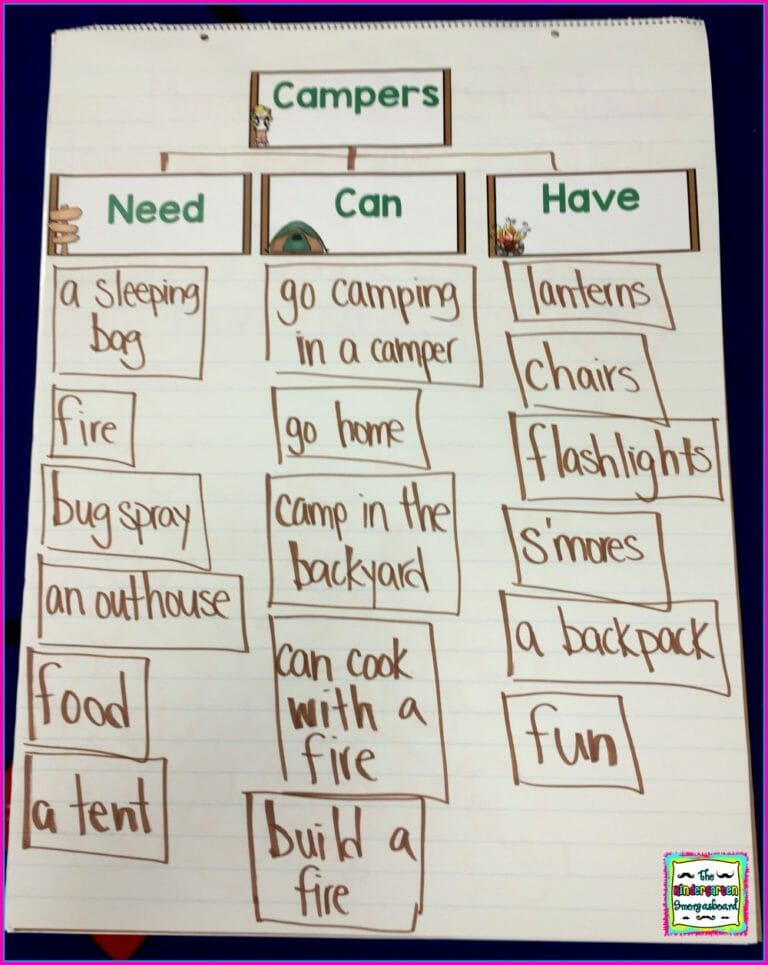 Campers
Need
Can
Have
a sleeping
bag
fire
bug spray
an outhouse
food
a tent
go camping
in a camper
go home
camp in the
backyard
can cook
with a
fire
build a
fire
lanterns
chairs
flashlights
s'mores
a backpack
fun
The
Kindergarten
Smorgasboard